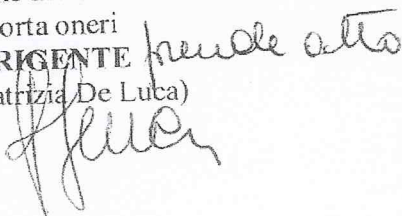 orta oneri
RIGENTE prende atto
atrizia De Luca)